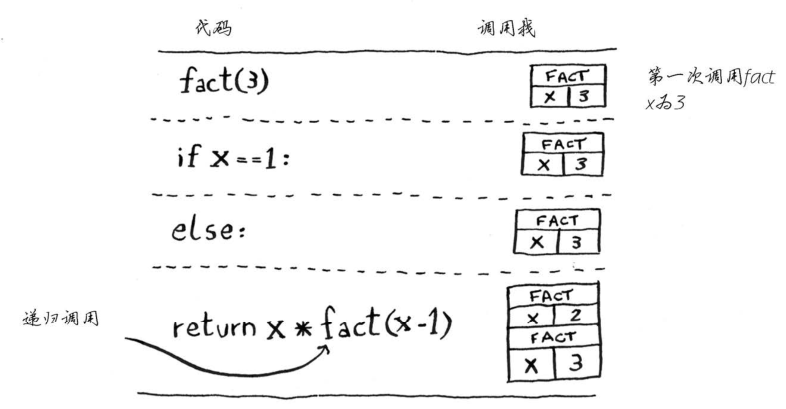 代码
调用我
fact(3)
FACT
X 3
第一次调用fact
x为3
if x==1:
FACT
X 3
else:
FACT
X 3
递归调用
return x * fact(x-1)
FACT
X 2
FACT
X 3